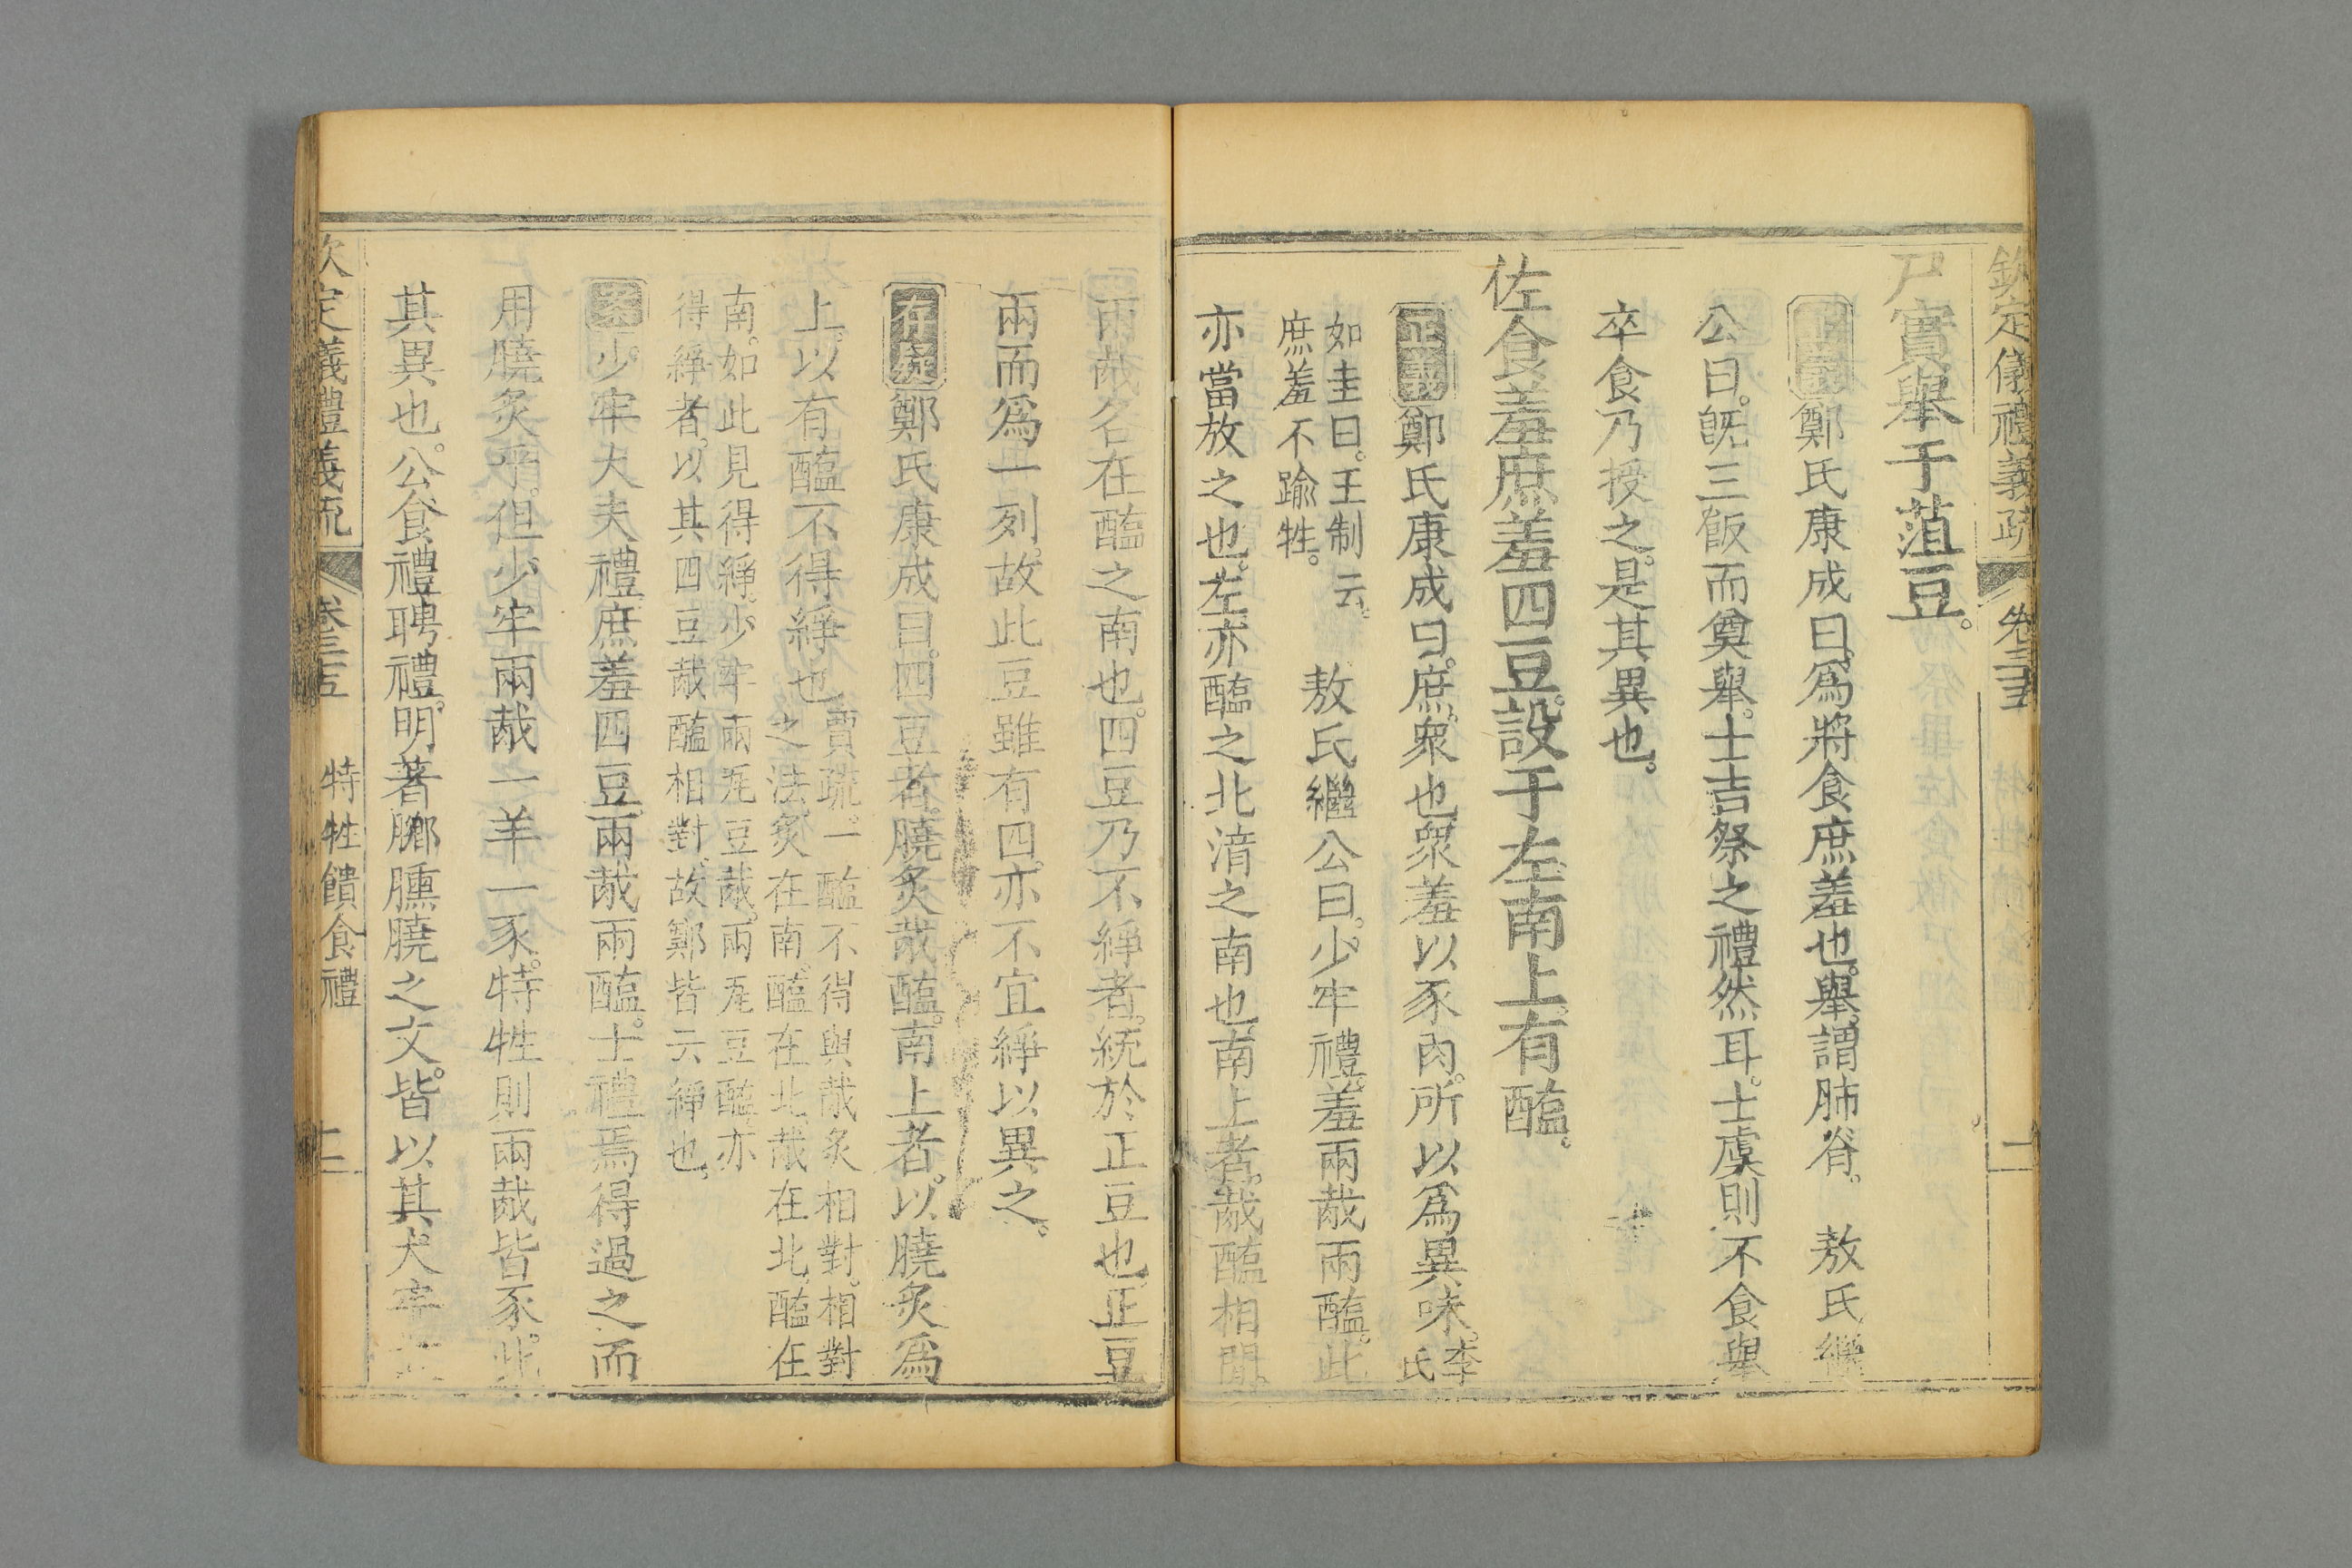 欽定儀禮義疏 卷三十五 二
尸實舉于菹豆。
正義鄭氏康成曰。爲將食庶羞也。舉。謂肺脊。 敖氏繼
公曰。旣三飯而奠舉。士吉祭之禮然耳。士虞則不食舉
卒食乃授之。是其異也。
佐食羞庶羞四豆。設于左。南上。有醢。
正義鄭氏康成曰。庶。衆也。衆羞以豕肉。所以爲異味。李氏
如圭曰。王制云。
庶羞不踰牲。
敖氏繼公曰。少牢禮。羞兩胾兩醢。此
亦當放之也。左。亦醢之北湆之南也。南上者。胾醢相閒。
兩胾名在醢之南也。四豆乃不綪者。統於正豆也。正豆
兩而爲一列。故此豆雖有四。亦不宜綪以異之。
存疑鄭氏康成曰。四豆者。膮炙胾醢。南上者。以膮炙爲
上。以有醢不得綪也。
賈疏。一醢不得與胾炙相對。相對
之法。炙在南。醢在北。胾在北。醢在
南。如此見得綪。少牢兩瓦豆胾。兩瓦豆醢。亦
得綪者。以其四豆胾醢相對。故鄭皆云綪也。
案少牢大夫禮庶羞四豆。兩胾兩醢。士禮焉得過之而
用膮炙乎。但少牢兩胾一羊一豕。特牲則兩胾皆豕。此
其異也。公食禮聘禮。明著膷臐膮之文。皆以其犬牢
欽定儀禮義疏 卷三十五 特牲饋食禮 二